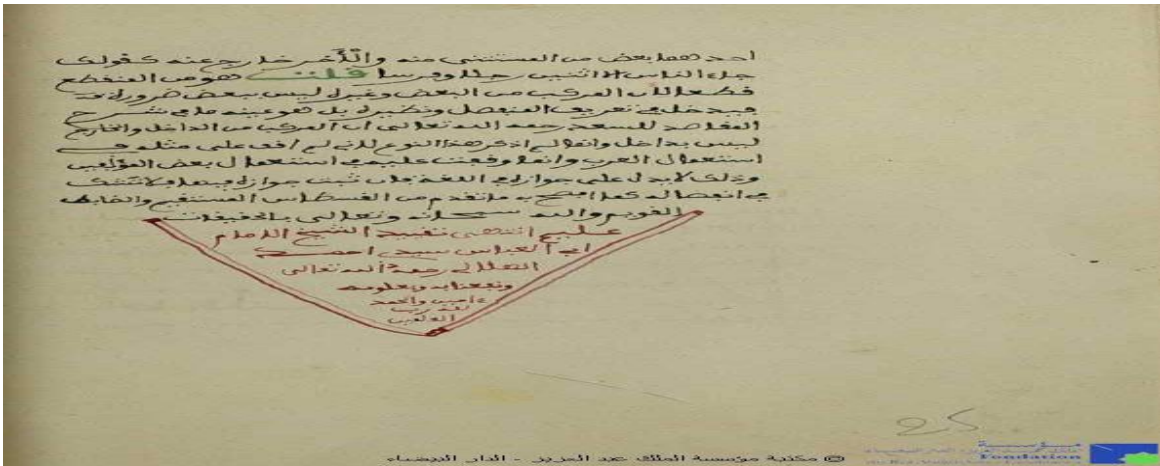 احدهما بعض من المستثنى منه والآخر خارج عنه كقولك
جاء الناس الا اثنين رجلا وفرسا قلت هو من المنقطع
قطعا لان المركب من البعض وغيره ليس ببعض ضرورة
فيدخل في تعريف المنفصل ونظيره بل هو عينه ما في شرح
المقاصد للسعد رحمه الله تعالى ان المركب من الداخل والخارج
ليس بداخل وانما لم اذكر هذا النوع لاني لم اقف على مثله في
استعمال العرب وانما وقفت عليه في استعمال بعض المؤلفين
وذلك لا يدل على جوازه في اللغة فان ثبت جوازه فيها فلا شك
في انفصاله كما افصح به ما تقدم من القسطاس المستقيم والضابط
القويم والله سبحانه وتعالى بالخفيات
عليم انتهى تقييد الشيخ الامام
ابي العباس سيدي احمد
الهلالي رحمه الله تعالى
ونفعنا به وبعلومه
ءامين والحمد
لله رب
العلمين
25
مؤسسة
Fondation
© مكتبة مؤسسة الملك عبد العزيز - الدار البيضاء